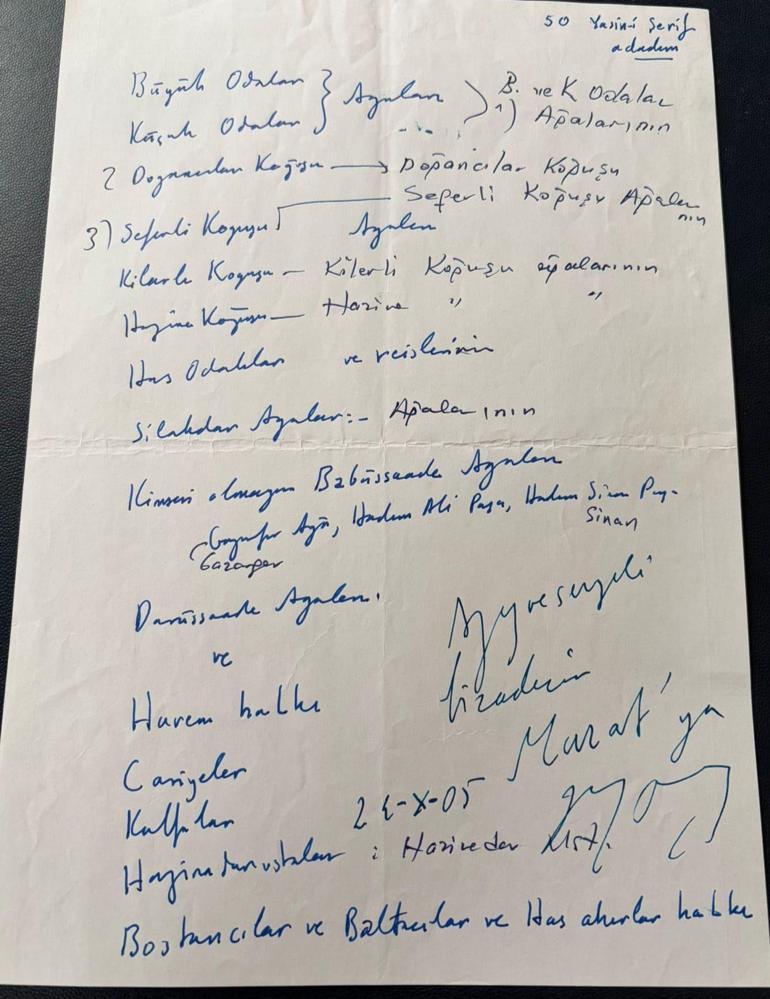 50 Yasin-i Şerif
adadım
Büyük Odaları } Agaları
Küçük Odaları
1) B. ve K Odalar
Ağalarının
2 Doğancıları Koğuşu → Doğancılar Koğuşu
Seferli Koğuşu Ağala
rının
3) Seferli Koğuşu Agaları
Kilerli Koguşu — Kilerli Koğuşu ağalarının
Hazine Koğuşu — Hazine " "
Has Odalıları ve reislerinin
Silahdar Agaları :- Ağalarının
Kimsesi olmayan Babüssaade Agaları
Gazanfer Ağa, Hadım Ali Paşa, Hadım Sinan Paşa
Gazanfer
Sinan
Darüssaade Agaları.
ve
Harem halkı
Cariyeler
Kalfalar
Hazinedar ustaları : Hazinedar Ust.
Aziz ve sevgili
biraderim
Murat'ya
24-X-05
Bostancılar ve Baltacılar ve Has ahırlar halkı